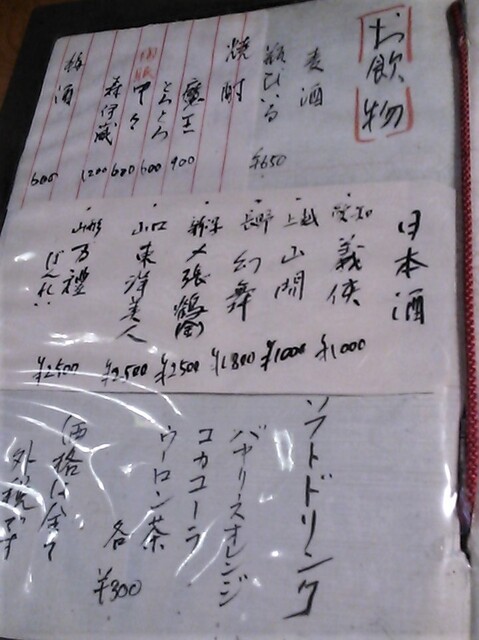 お飲物
麦酒
瓶びいる ¥650
焼酎
魔王 900
とろとろ 600
甲々 600
森伊蔵 1200
梅酒 600
日本酒
・愛知 義侠 ¥1000
・上越 山間 ¥1000
・長野 幻舞 ¥1800
・新潟 〆張鶴 ¥2500
・山口 東洋美人 ¥2500
・山形 ばんれい ¥2500
ソフトドリンク
バヤリースオレンジ
コカコーラ
ウーロン茶
各 ¥300
価格は全て
外税です